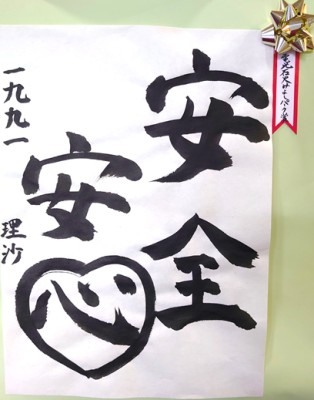 安全
安心
一九九一 理沙